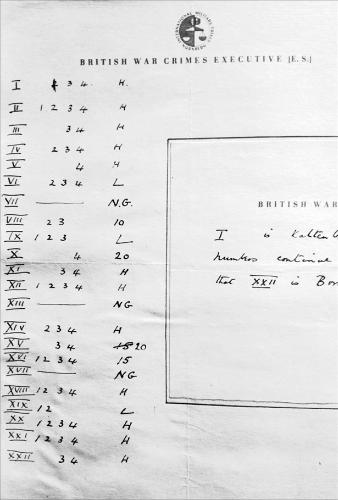 INTERNATIONAL MILITARY TRIBUNAL
NUREMBERG
BRITISH WAR CRIMES EXECUTIVE [E.S.]
I 3 4 H.
II 1 2 3 4 H
III 3 4 H
IV 2 3 4 H
V 4 H
VI 2 3 4 L
VII —— N.G.
VIII 2 3 10
IX 1 2 3 L
X 4 20
XI 3 4 H
XII 1 2 3 4 H
XIII —— NG
XIV 2 3 4 H
XV 3 4 20
XVI 1 2 3 4 15
XVII —— NG
XVIII 1 2 3 4 H
XIX 1 2 L
XX 1 2 3 4 H
XXI 1 2 3 4 H
XXII 3 4 H
BRITISH WAR
I is Kalten
numbers continue
that XXII is Bor